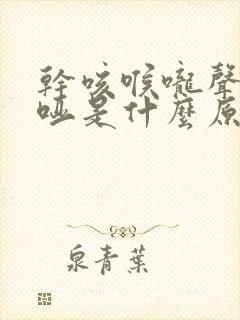 幹咳喉嚨聲
啞是什麼原
泉青葉